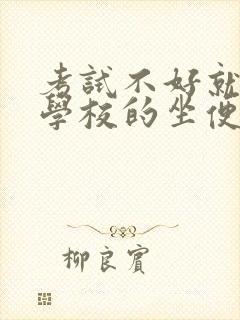 考試不好就
學校的坐便
柳良賓